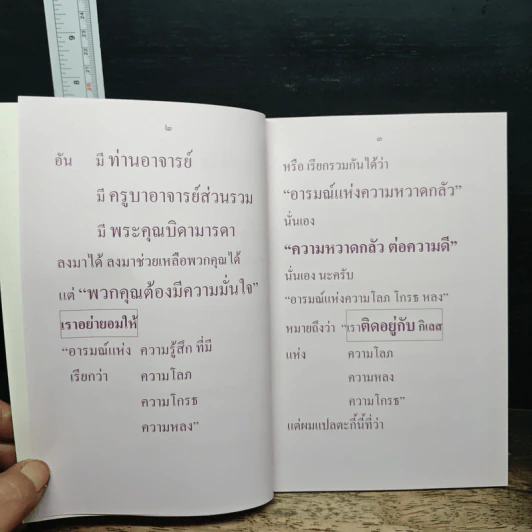 ๒
อัน มี ท่านอาจารย์
มี ครูบาอาจารย์ส่วนรวม
มี พระคุณบิดามารดา
ลงมาได้ ลงมาช่วยเหลือพวกคุณได้
แต่ “พวกคุณต้องมีความมั่นใจ”
เราอย่ายอมให้
“อารมณ์แห่ง ความรู้สึก ที่มี
เรียกว่า ความโลภ
ความโกรธ
ความหลง”
๓
หรือ เรียกรวมกันได้ว่า
“อารมณ์แห่งความหวาดกลัว”
นั่นเอง
“ความหวาดกลัว ต่อความดี”
นั่นเอง นะครับ
“อารมณ์แห่งความโลภ โกรธ หลง”
หมายถึงว่า “เราติดอยู่กับ กิเลส
แห่ง ความโลภ
ความหลง
ความโกรธ”
แต่ผมแปลตะกี้นี้ที่ว่า